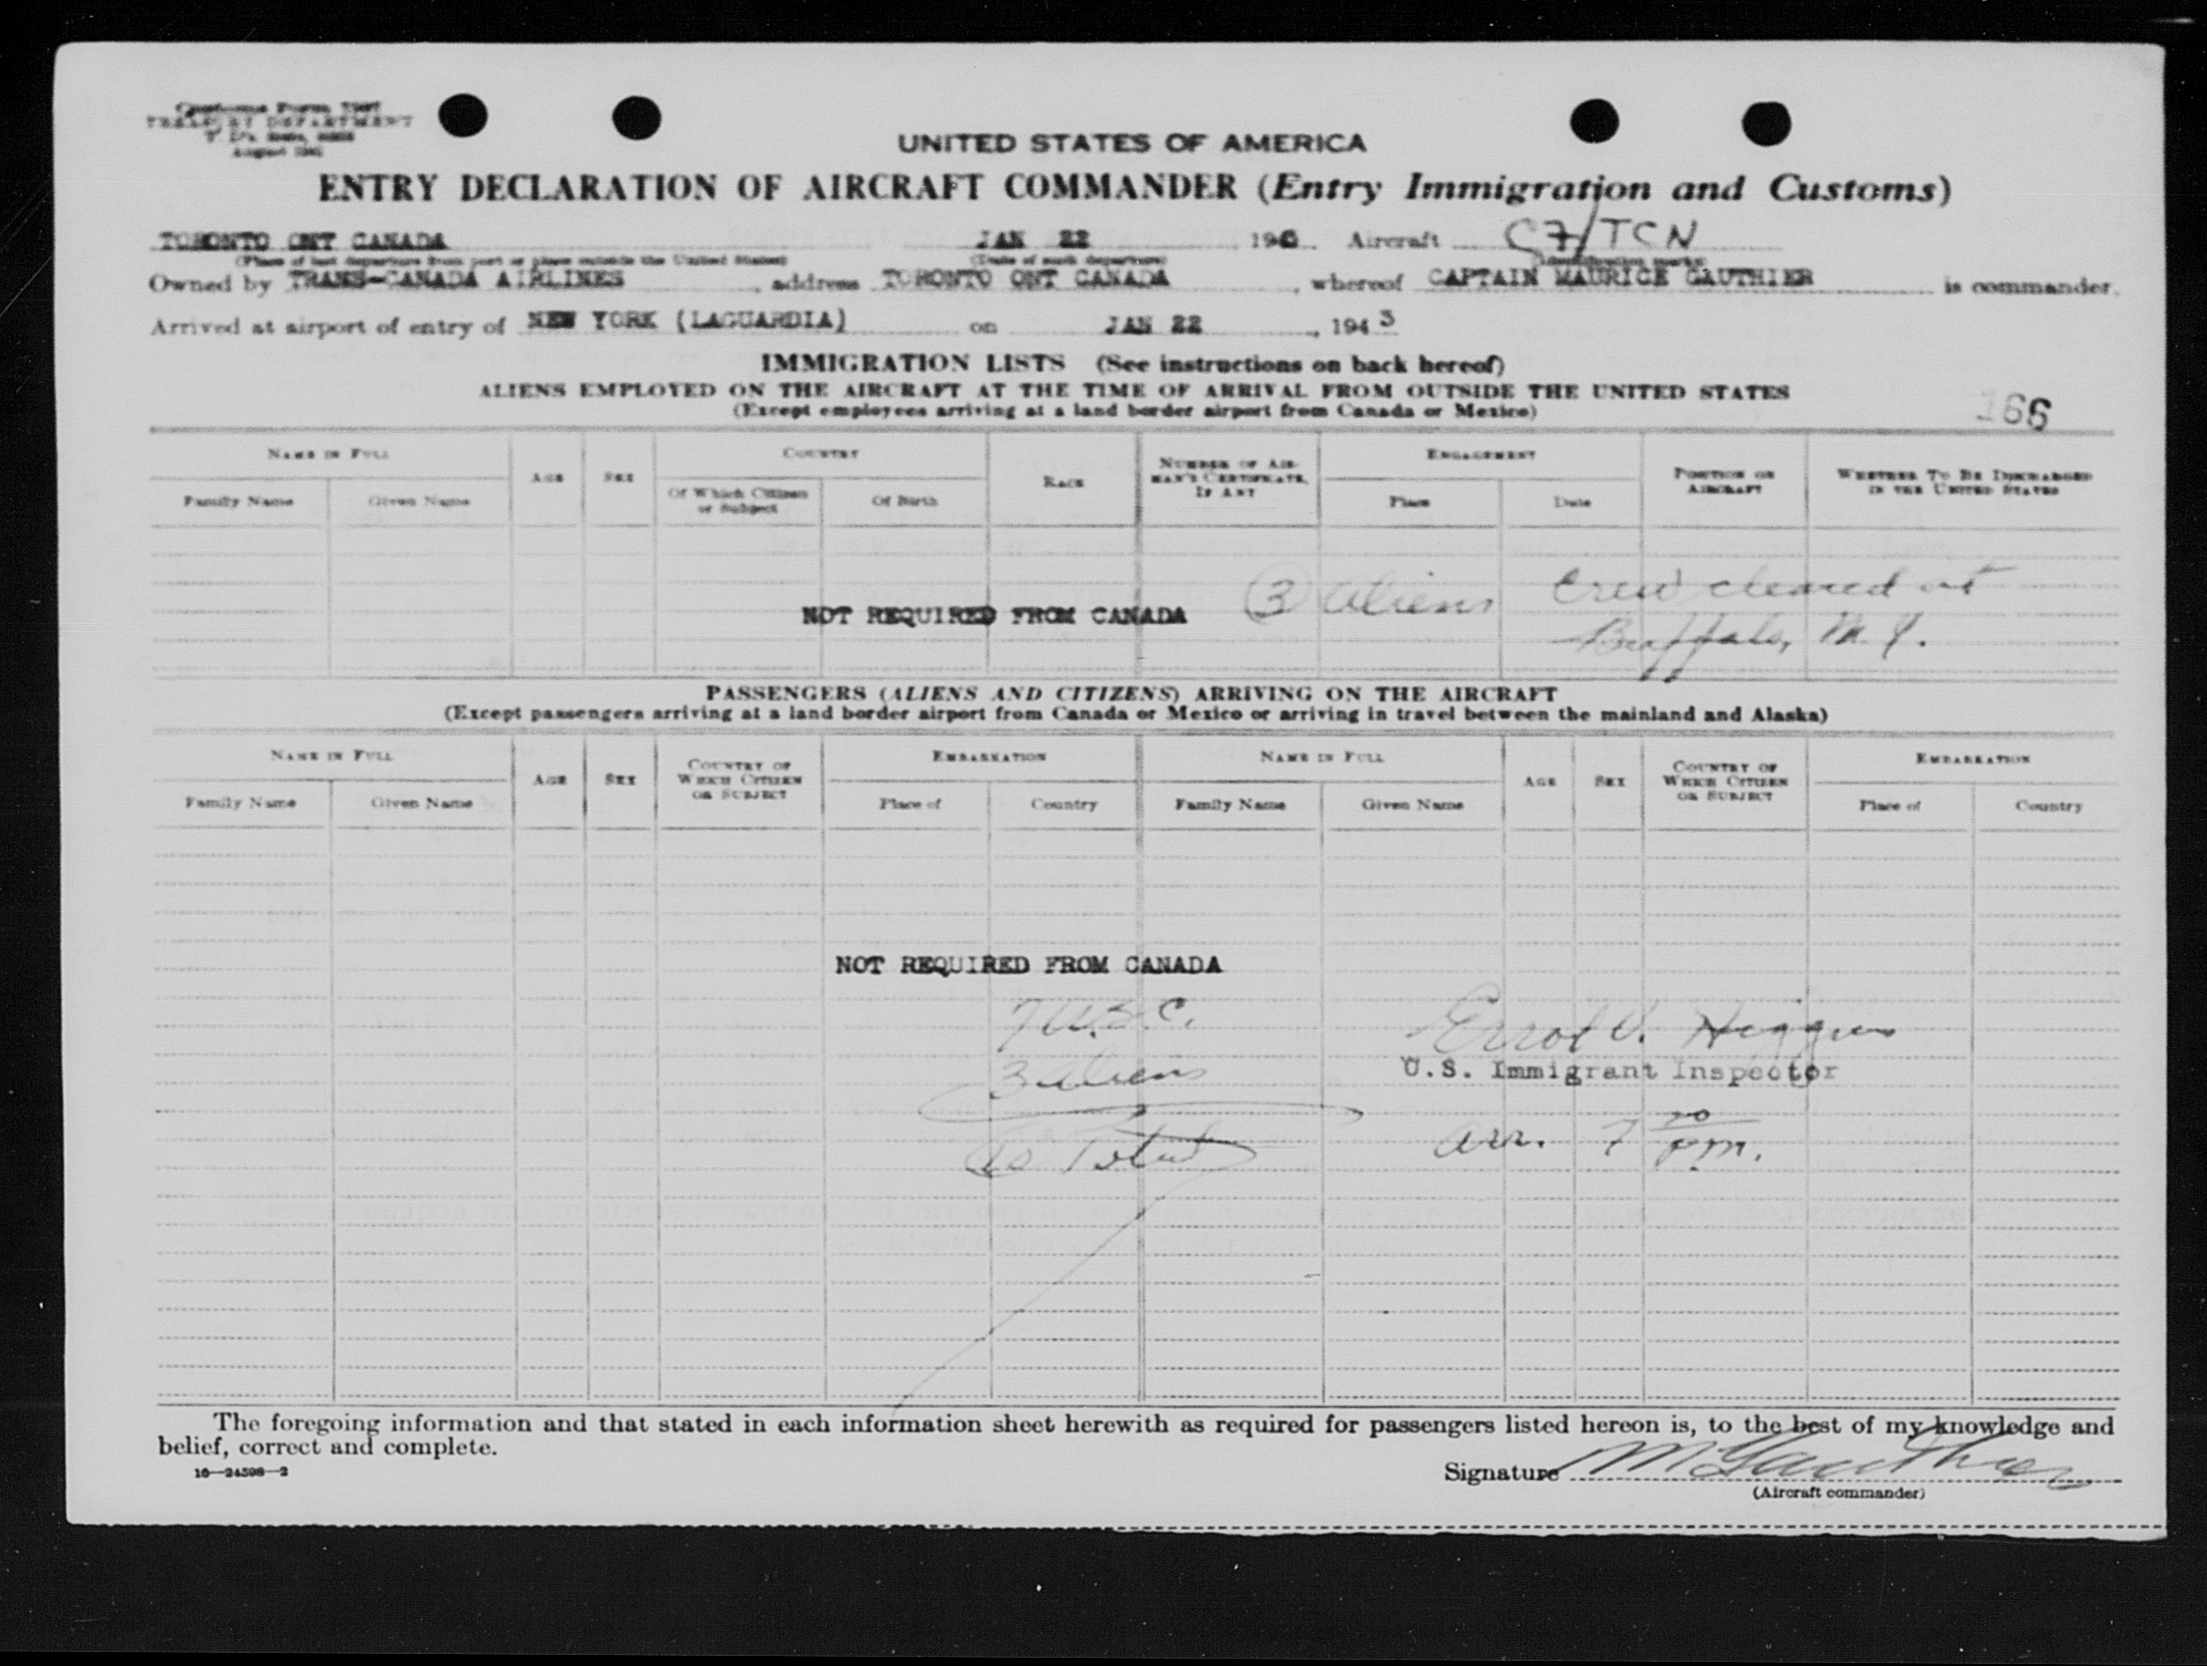 Customs Form
TREASURY DEPARTMENT
August
UNITED STATES OF AMERICA
ENTRY DECLARATION OF AIRCRAFT COMMANDER (Entry Immigration and Customs)
TORONTO ONT CANADA JAN 22 194 Aircraft CF/TCN
(Place of last departure from port or place outside the United States) (Date of such departure) (Identification marks)
Owned by TRANS-CANADA AIRLINES, address TORONTO ONT CANADA, whereof CAPTAIN MAURICE GAUTHIER is commander.
Arrived at airport of entry of NEW YORK (LAGUARDIA) on JAN 22, 1943
IMMIGRATION LISTS (See instructions on back hereof)
ALIENS EMPLOYED ON THE AIRCRAFT AT THE TIME OF ARRIVAL FROM OUTSIDE THE UNITED STATES
(Except employees arriving at a land border airport from Canada or Mexico)
166
NAME IN FULL AGE SEX COUNTRY RACE NUMBER OF AIRMAN'S CERTIFICATE, IF ANY ENGAGEMENT POSITION ON AIRCRAFT WHETHER TO BE DISCHARGED IN THE UNITED STATES
Family Name Given Name Of Which Citizen or Subject Of Birth Place Date
NOT REQUIRED FROM CANADA 3 aliens Crew cleared at
Buffalo, N.Y.
PASSENGERS (ALIENS AND CITIZENS) ARRIVING ON THE AIRCRAFT
(Except passengers arriving at a land border airport from Canada or Mexico or arriving in travel between the mainland and Alaska)
NAME IN FULL AGE SEX COUNTRY OF WHICH CITIZEN OR SUBJECT EMBARKATION NAME IN FULL AGE SEX COUNTRY OF WHICH CITIZEN OR SUBJECT EMBARKATION
Family Name Given Name Place of Country Family Name Given Name Place of Country
NOT REQUIRED FROM CANADA
7 U.S.C. Errol V. Higgins
3 aliens U.S. Immigrant Inspector
10 Total Arr. 7 20 P.M.
The foregoing information and that stated in each information sheet herewith as required for passengers listed hereon is, to the best of my knowledge and
belief, correct and complete.
16—24598—2
Signature M Gauthier
(Aircraft commander)